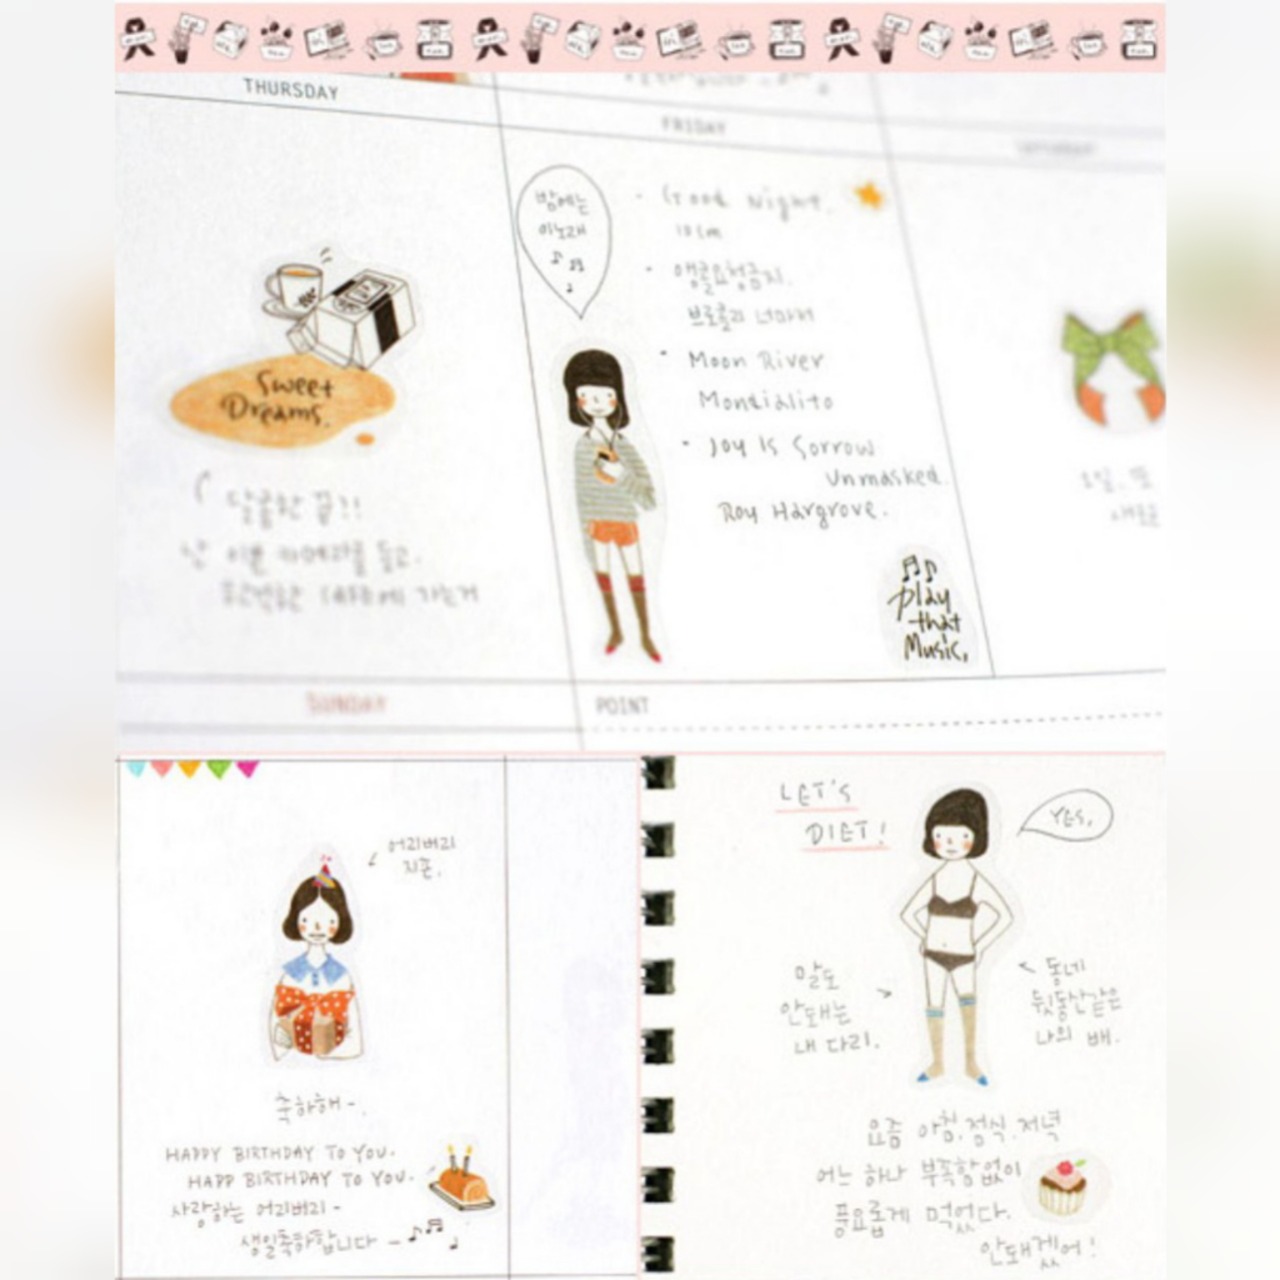 THURSDAY
FRIDAY
Sweet
Dreams.
밤에는
이노래
Good Night.
10cm
앵콜요청금지.
브로콜리 너마저
Moon River
Mondialito
Joy Is Sorrow
Unmasked.
Roy Hargrove.
play
that
Music,
달콤한 꿈?!
난 이쁜 카메라를 들고.
SUNDAY
POINT
어리버리
지존.
축하해-.
HAPPY BIRTHDAY TO YOU.
HAPP BIRTHDAY TO YOU.
사랑하는 어리버리-
생일축하합니다-
LET'S
DIET!
YES,
말도
안돼는
내 다리.
동네
뒷동산같은
나의 배.
요즘 아침.점심.저녁
어느 하나 부족함없이
풍요롭게 먹었다.
안돼겠어!